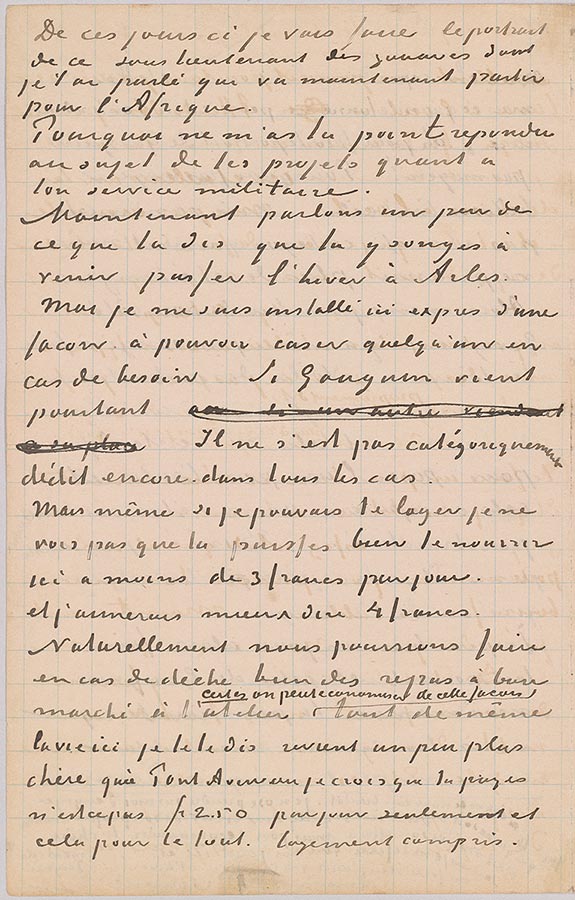 De ces jours ci je vais faire le portrait
de ce sous lieutenant des zouaves dont
je t'ai parlé qui va maintenant partir
pour l'Afrique.
Pourquoi ne m'as tu point repondu
au sujet de tes projets quant à
ton service militaire.
Maintenant parlons un peu de
ce que tu dis que tu y songes à
venir passer l'hiver à Arles.
Moi je me suis installé ici expres d'une
facon à pouvoir caser quelqu'un en
cas de besoin Si Gauguin vient
pourtant ou si un autre viendrait
à sa place Il ne s'est pas catégoriquement
dédit encore dans tous les cas.
Mais même si je pouvais te loger je ne
vois pas que tu puisses bien te nourrir
ici a moins de 3 francs par jour.
et j'aimerais mieux dire 4 francs.
Naturellement nous pourrions faire
en cas de dèche bien des repas à bon
certes on peut economiser de cette facon
marché à l'atelier, tout de même
la vie ici je te le dis revient un peu plus
chère qu'à Pont Aven je crois que tu payes
n'est ce pas fr 2.50 par jour seulement et
cela pour le tout. logement compris.